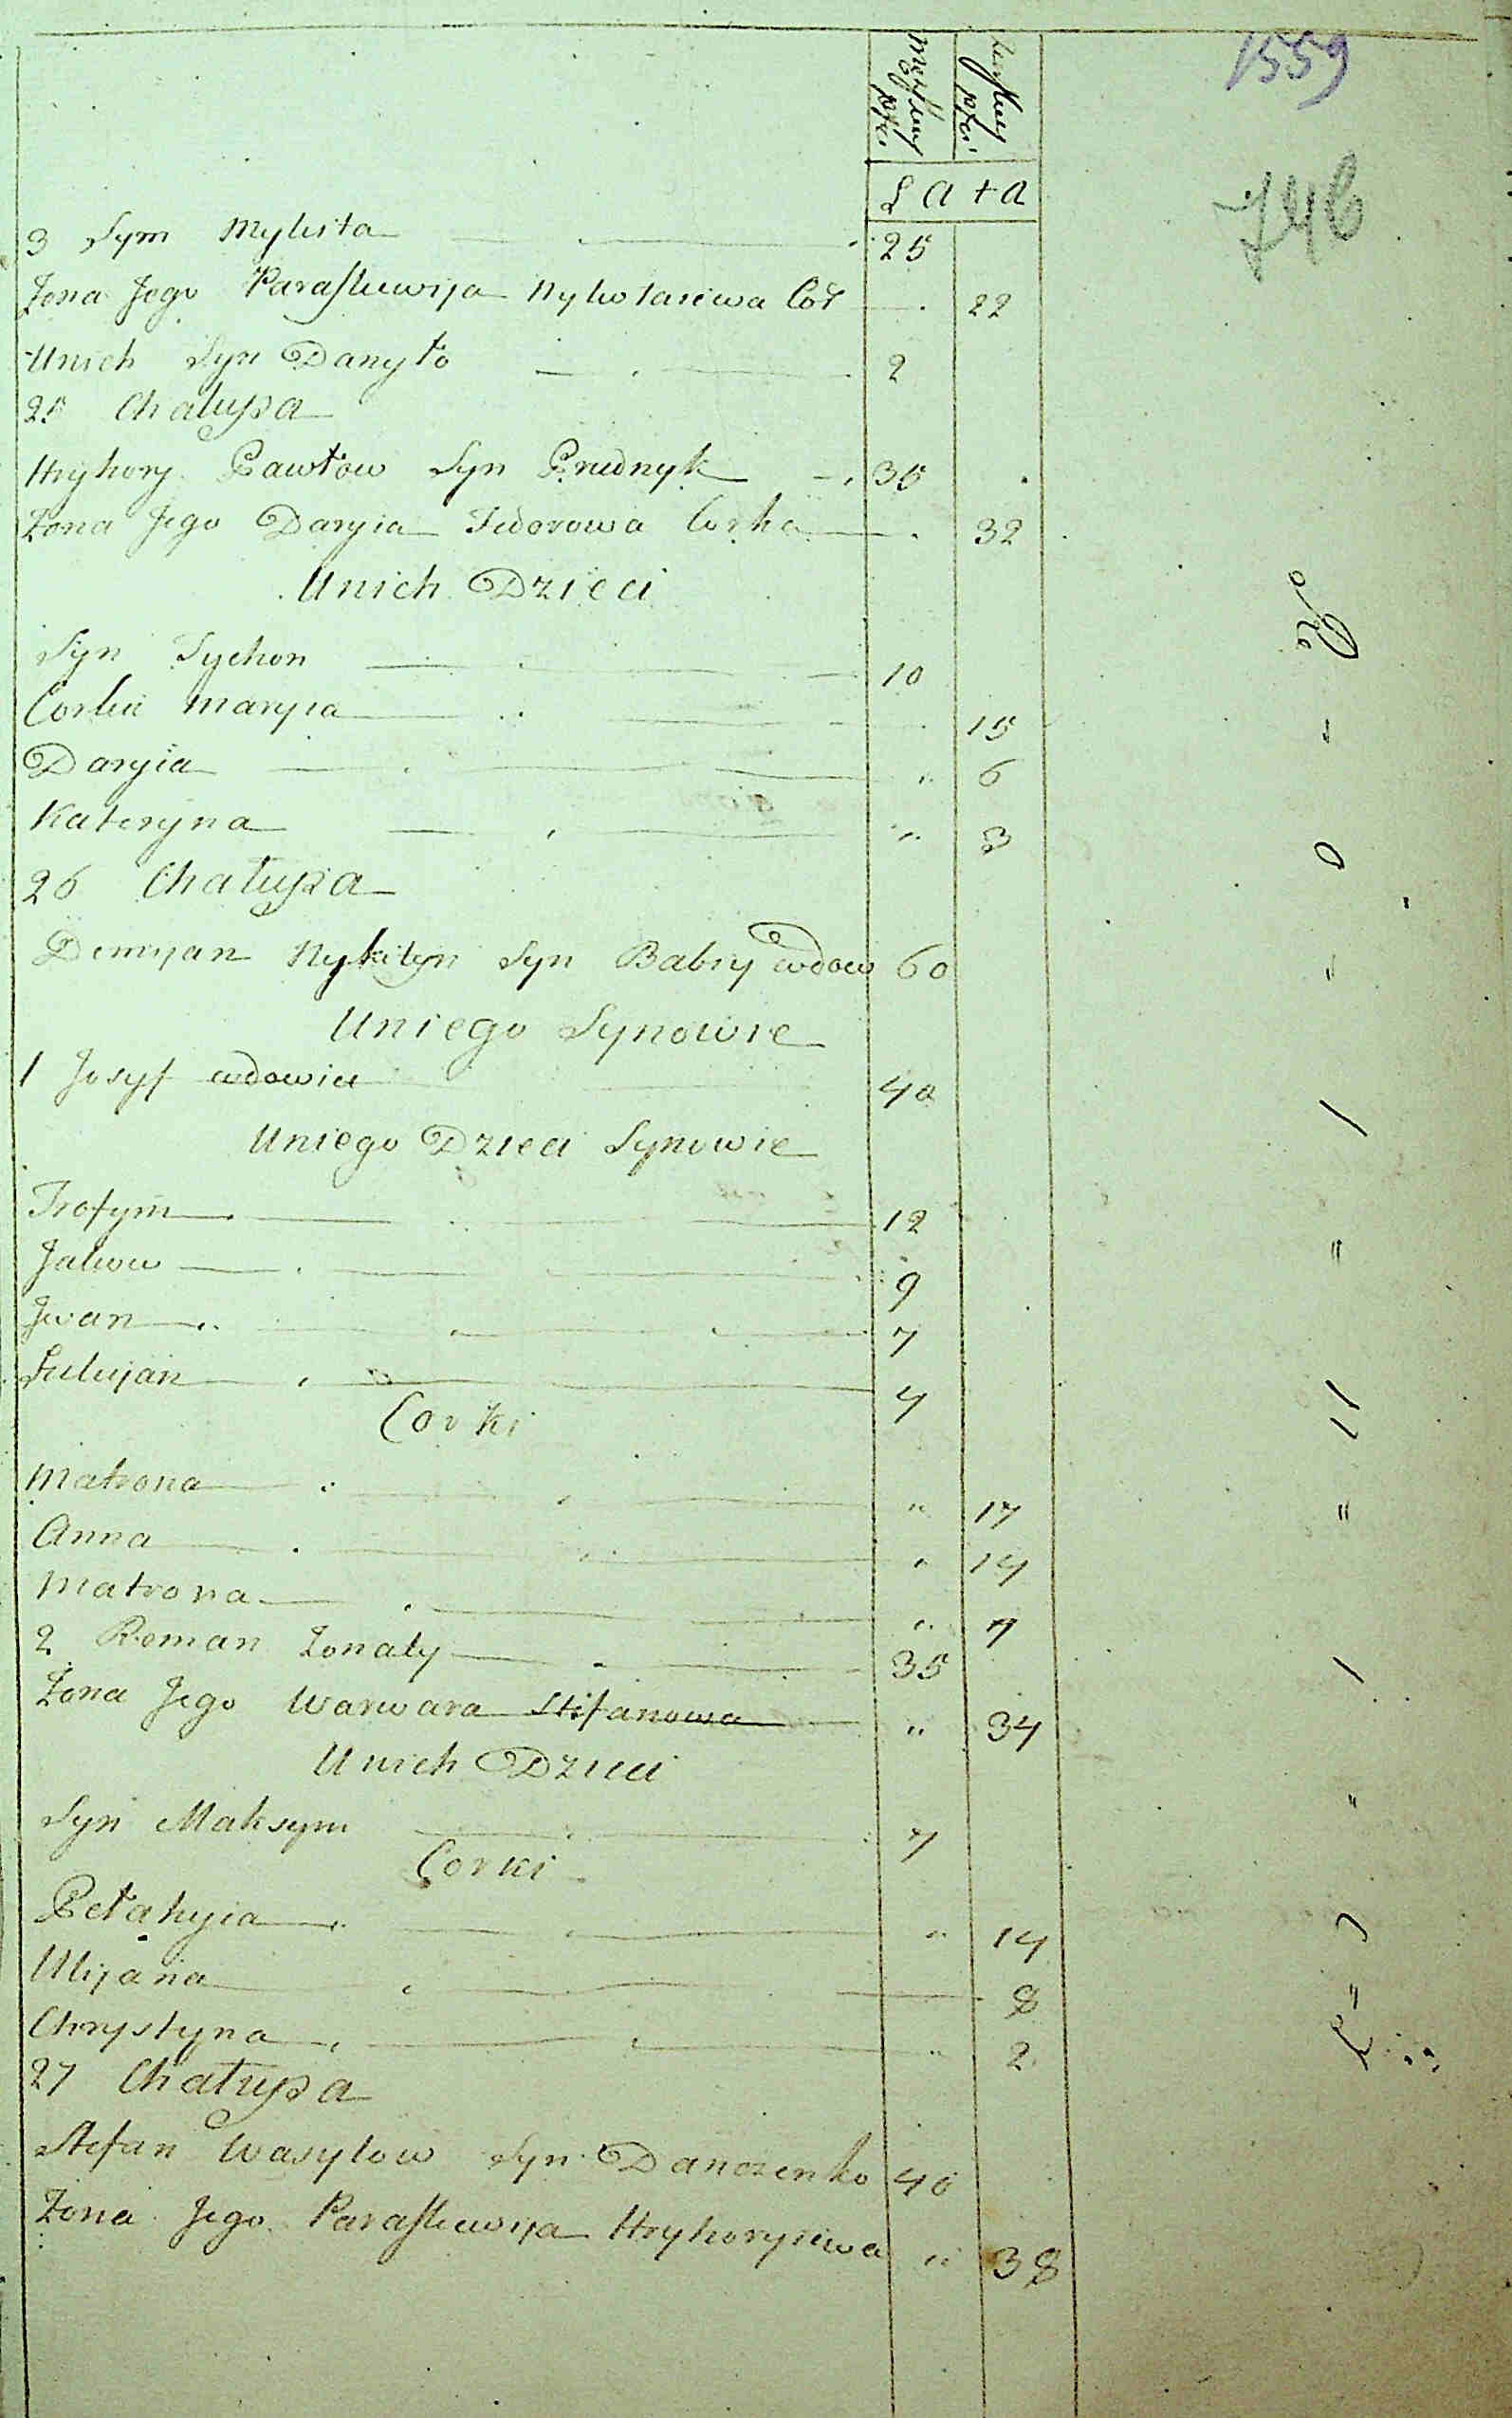 1559
746
Męskiey płci
żeńskiey płci
Lata
3 Syn Mykita 25
Żona Jego Paraskewija Nykołaiewa Cor 22
Unich Syn Danyło 2
25 Chałupa
Hryhory Pawłow Syn Prudnyk 35
Żona Jego Daryia Fedorowa Corka 32
Unich Dzieci
Syn Tychon 10
Corki Maryia 15
Daryia " 6
Kateryna " 3
26 Chałupa
Demyan Nykityn Syn Babiy wdow 60
Uniego Synowie
1 Josyf wdowiec 40
Uniego Dzieci Synowie
Trofym 12
Jakow 9
Jwan 7
Łukijan 4
Corki
Matrona " 17
Anna " 14
Matrona " 7
2 Roman Żonaty 35
Żona Jego Warwara Stefanowa " 34
Unich Dzieci
Syn Maksym 7
Corki
Pełahyia " 14
Ulijana 8
Chrystyna " 2
27 Chałupa
Stefan Wasylow Syn Danczenko 40
Żona Jego Paraskewija Hryhoryiewa " 38